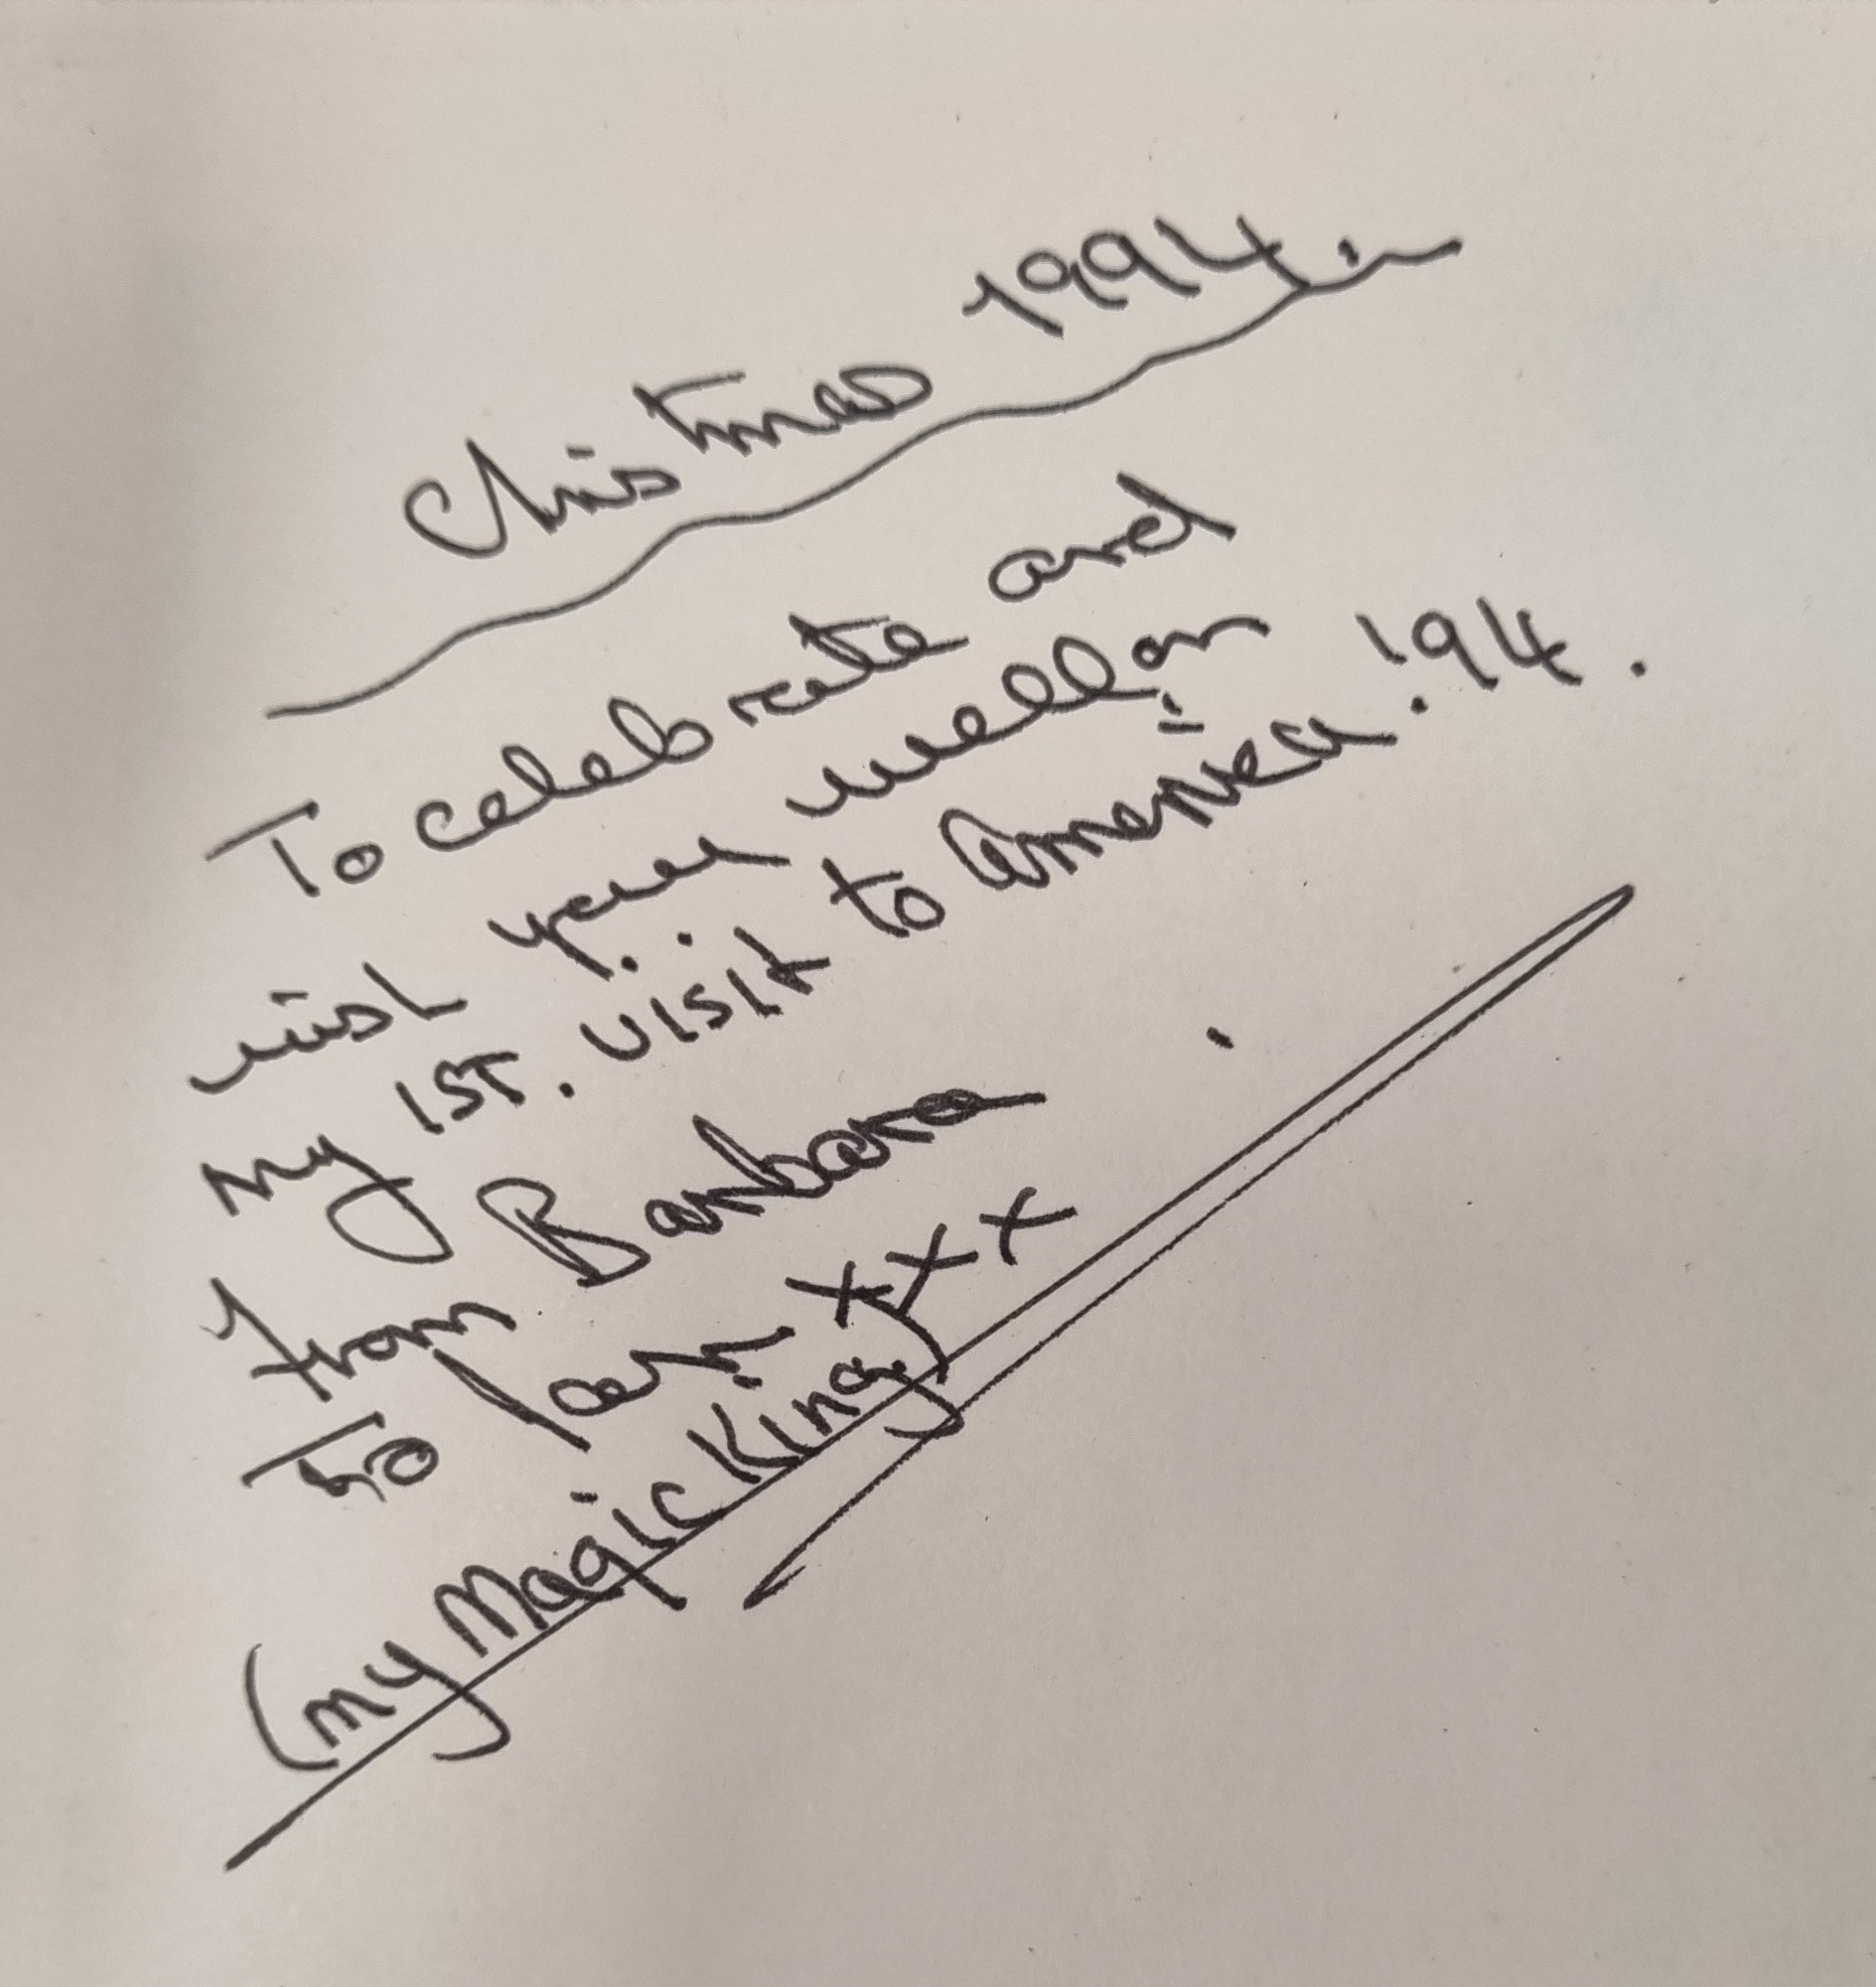 Christmas 1994.
To celebrate and
wish your well on
my 1st. visit to America! 94.
From Barbara
To Ian xxx
(my Magic King)